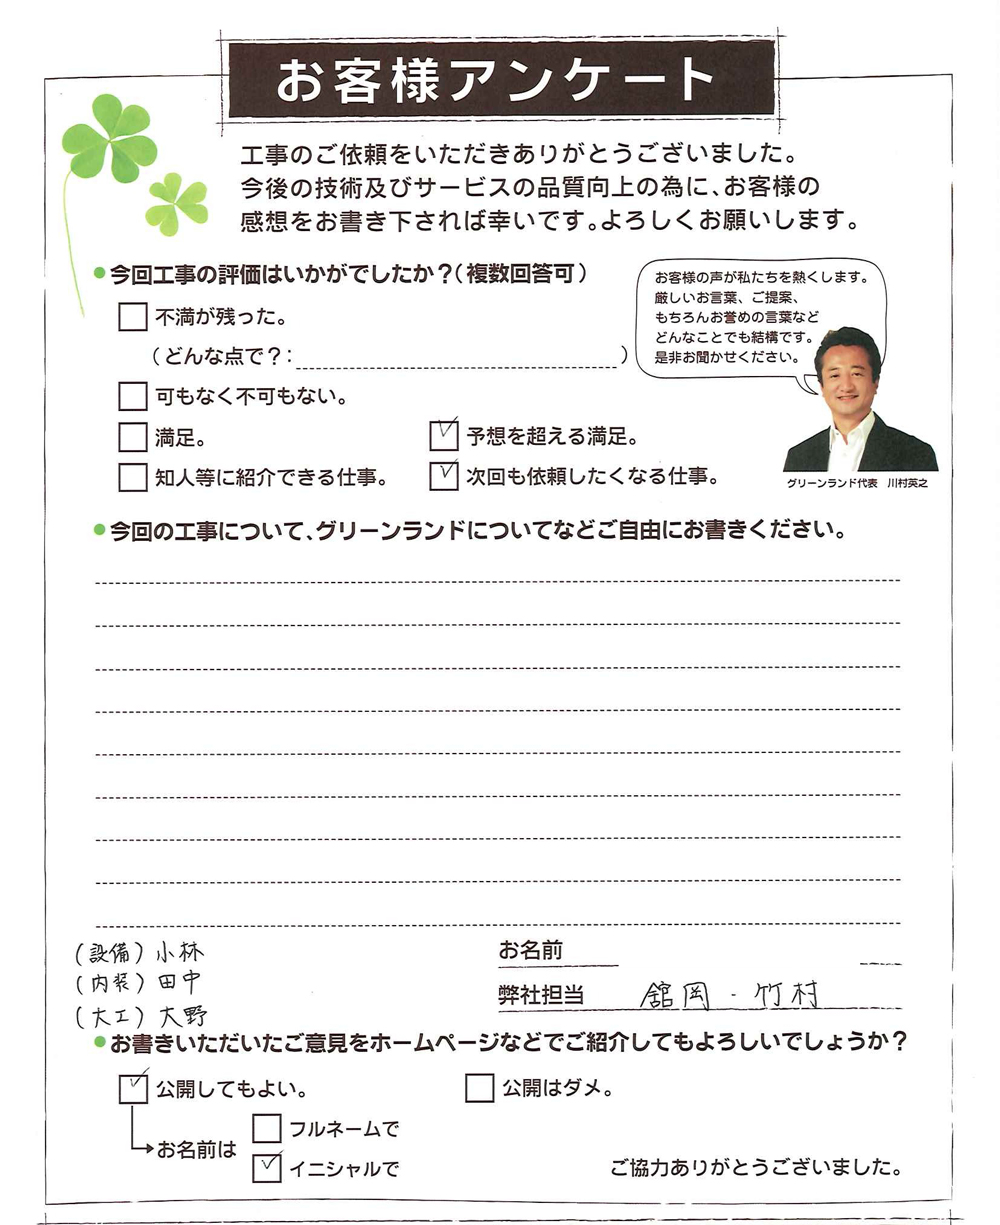 お客様アンケート
工事のご依頼をいただきありがとうございました。
今後の技術及びサービスの品質向上の為に、お客様の
感想をお書き下されば幸いです。よろしくお願いします。
今回工事の評価はいかがでしたか？（複数回答可）
不満が残った。
（どんな点で？：　）
可もなく不可もない。
満足。
予想を超える満足。
知人等に紹介できる仕事。
次回も依頼したくなる仕事。
お客様の声が私たちを熱くします。
厳しいお言葉、ご提案、
もちろんお誉めの言葉など
どんなことでも結構です。
是非お聞かせください。
グリーンランド代表　川村英之
今回の工事について、グリーンランドについてなどご自由にお書きください。
（設備）小林
（内装）田中
（大工）大野
お名前
弊社担当　舘岡・竹村
お書きいただいたご意見をホームページなどでご紹介してもよろしいでしょうか？
公開してもよい。
公開はダメ。
お名前は
フルネームで
イニシャルで
ご協力ありがとうございました。